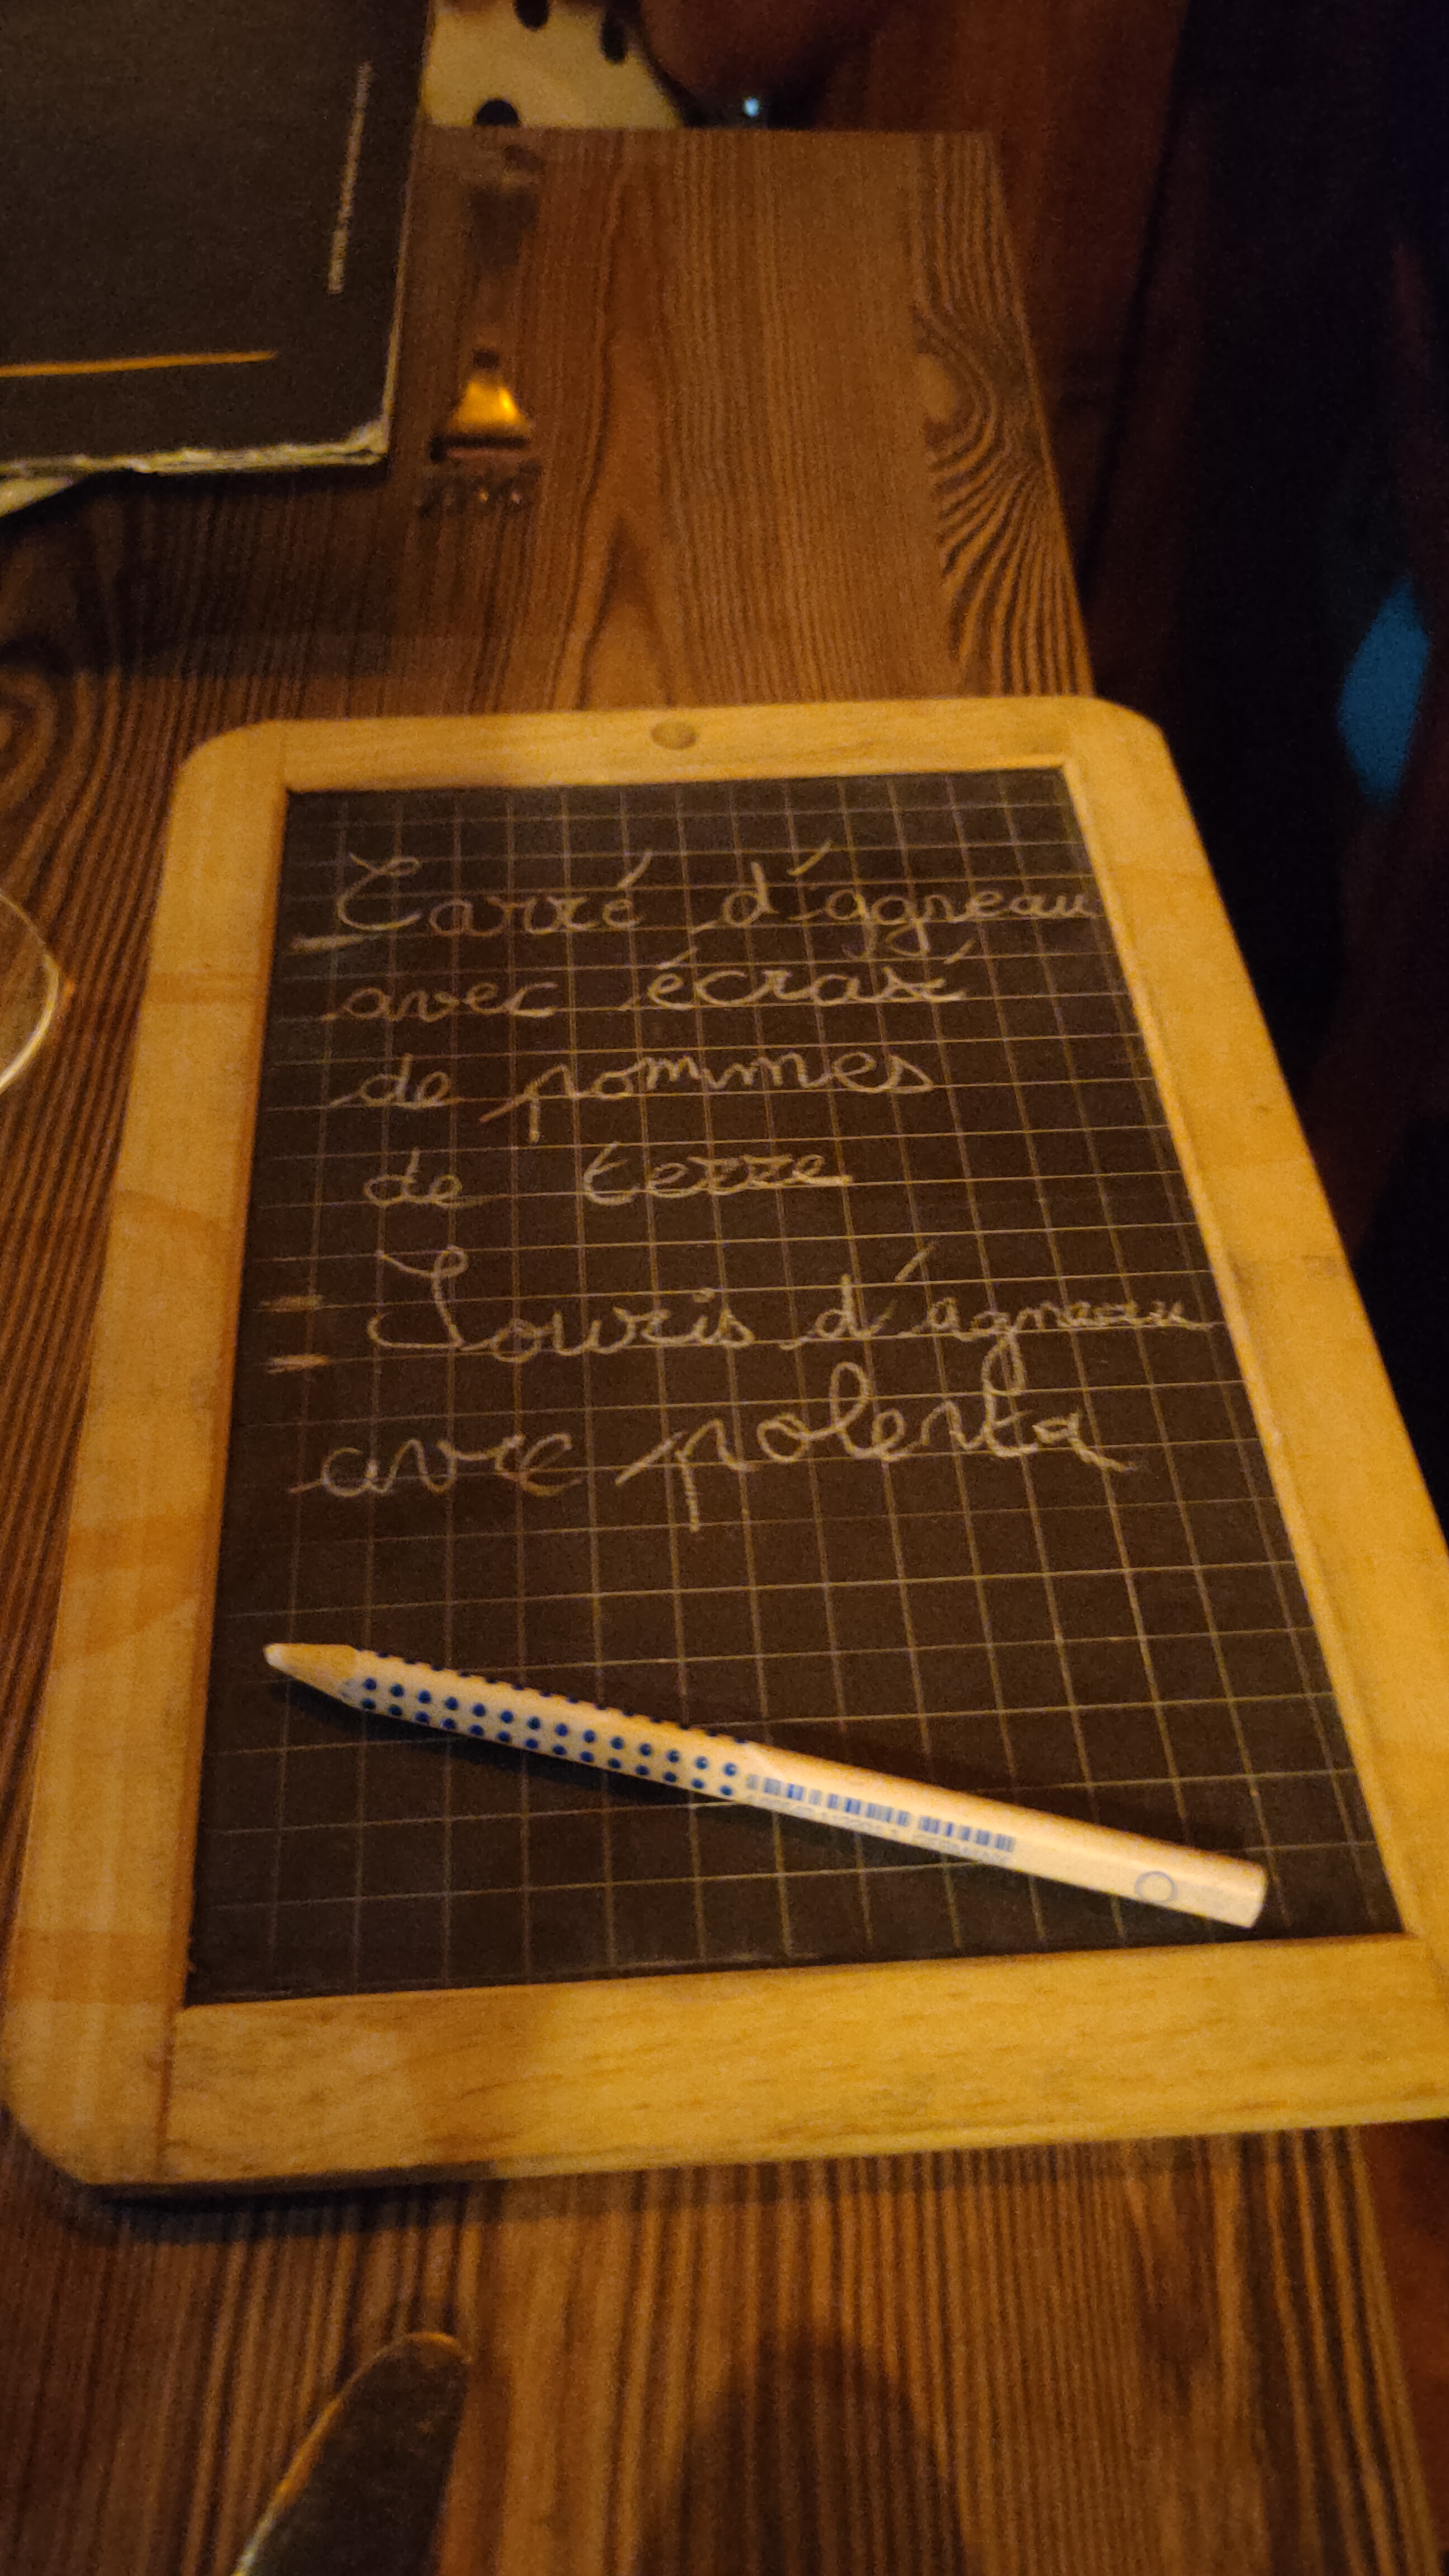 - Carré d'agneau
avec écrasé
de pommes
de terre
= Souris d'agneau
avec polenta